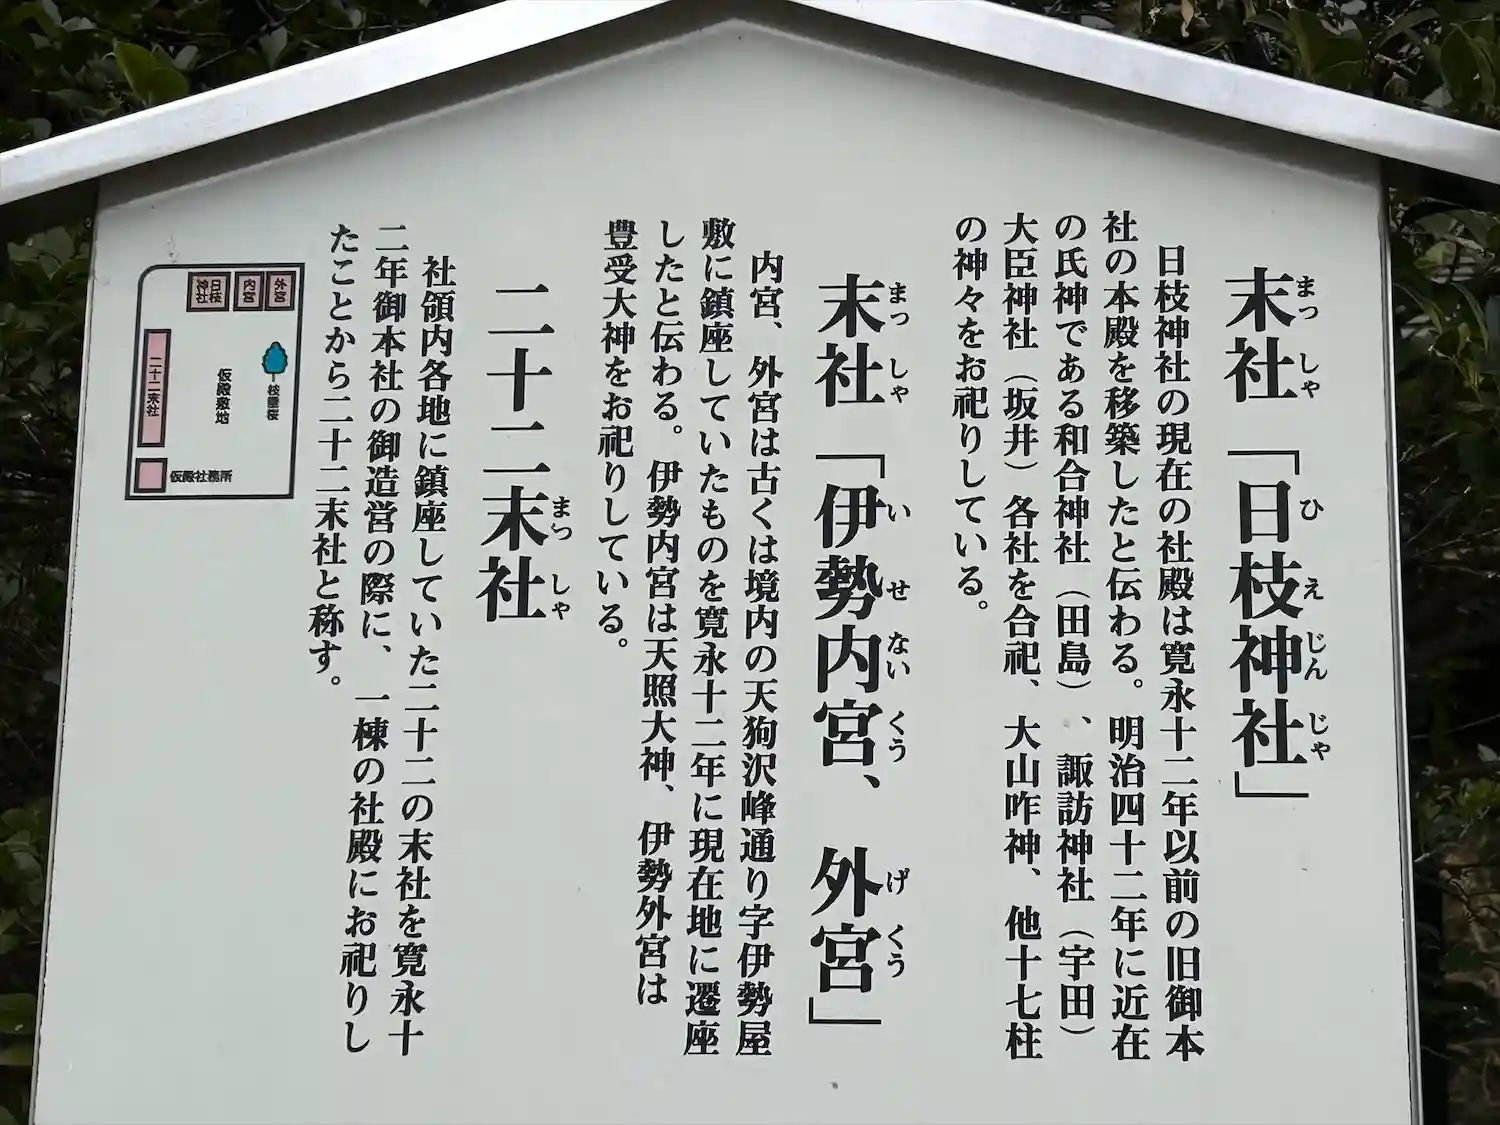 末社「日枝神社」
まつしゃ ひえじんじゃ
日枝神社の現在の社殿は寛永十二年以前の旧御本
社の本殿を移築したと伝わる。明治四十二年に近在
の氏神である和合神社（田島）、諏訪神社（宇田）
大臣神社（坂井）各社を合祀、大山咋神、他十七柱
の神々をお祀りしている。
末社「伊勢内宮、外宮」
まつしゃ いせないくう げくう
内宮、外宮は古くは境内の天狗沢峰通り字伊勢屋
敷に鎮座していたものを寛永十二年に現在地に遷座
したと伝わる。伊勢内宮は天照大神、伊勢外宮は
豊受大神をお祀りしている。
二十二末社
まつしゃ
社領内各地に鎮座していた二十二の末社を寛永十
二年御本社の御造営の際に、一棟の社殿にお祀りし
たことから二十二末社と称す。
外宮
内宮
日枝神社
枝垂桜
仮殿敷地
二十二末社
仮殿社務所